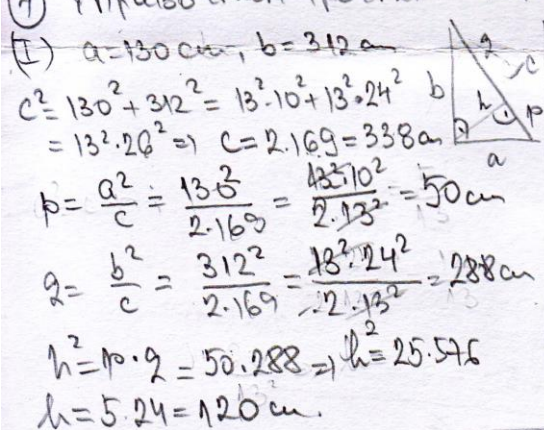 (I) a=130 cm, b=312 cm
c²=130²+312²=13²·10²+13²·24²
=13²·26² => c=2.169=338 cm
p = a²/c = 130²/2.169 = 13²·10²/2·13² = 50 cm
q = b²/c = 312²/2.169 = 13²·24²/2·13² = 288 cm
h²=p·q=50.288 => h²=25.576
h=5.24=120 cm.
b h q c p a